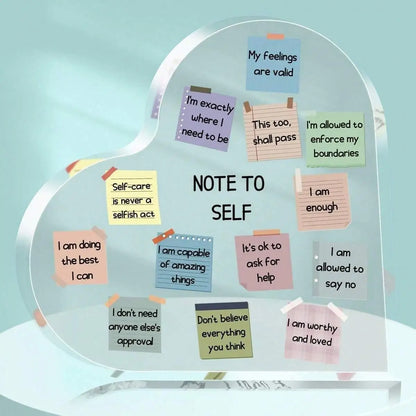 My feelings
are valid
I'm exactly
where I
need to be
This too,
shall pass
I'm allowed to
enforce my
boundaries
Self-care
is never a
selfish act
NOTE TO
SELF
I am
enough
I am doing
the best
I can
I am capable
of amazing
things
It's ok to
ask for
help
I am
allowed to
say no
I don't need
anyone else's
approval
Don't believe
everything
you think
I am worthy
and loved